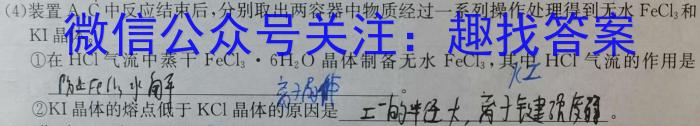 (4)装置 A、C中反应结束后,分别取出两容器中物质经过一系列操作处理得到无水 FeCl₃和
KI晶
微信公众号关注:趣找答案
①在HCl气流中蒸干 FeCl₃·6H₂O 晶体制备无水 FeCl₃,其中 HCl 气流的作用是
防止FeCl₃水解
离子晶体
②KI晶体的熔点低于KCl晶体的原因是 I⁻的半径大,离子键强度弱。